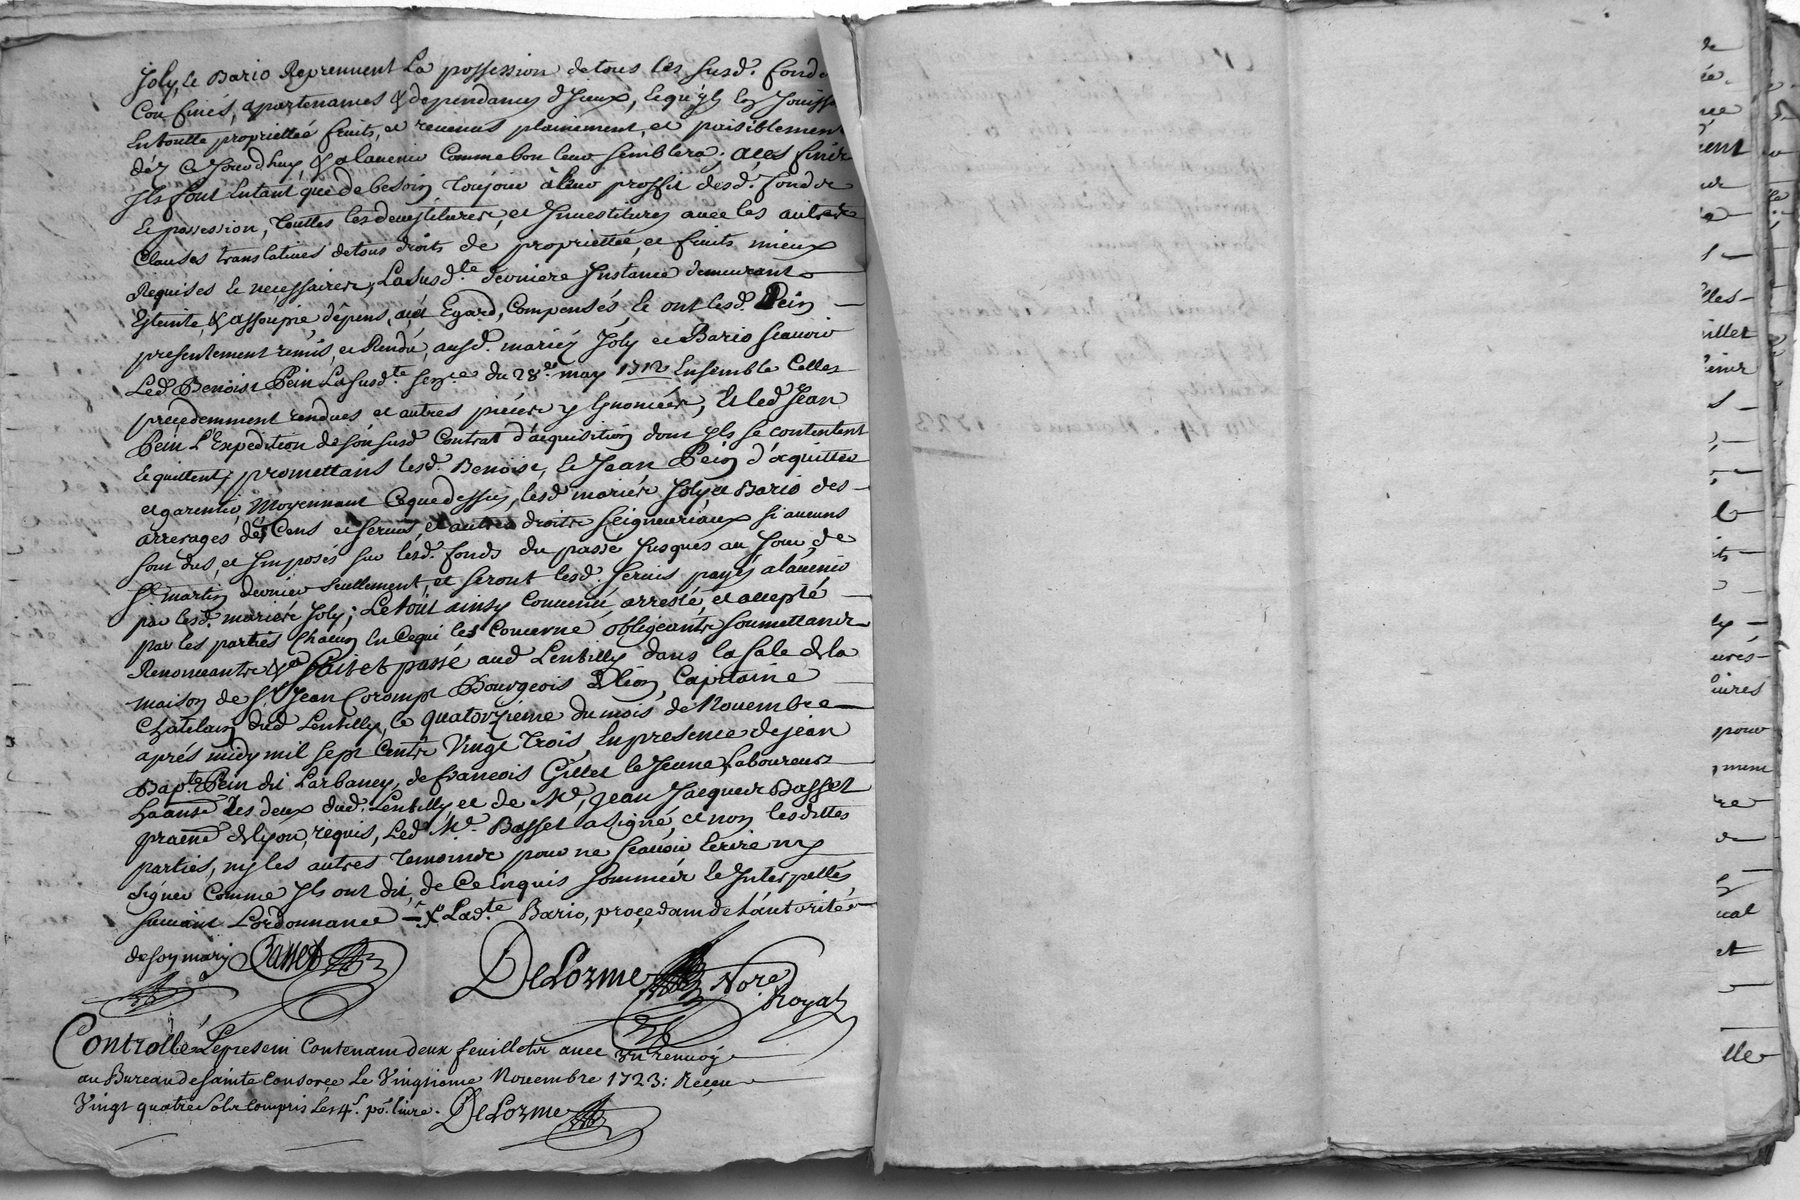 Joly, le Bario Reprennent La possession de tous les susd. fonds
Confinés, apartenances & dependances d'Jceux, le qu'jls les Jouisse
En toutte proprietteé fruits, et revenus plainement, et paisiblement
déz ce Jourd'huy, & alauenir Comme bon leur semblera; a ces fins
Jls font Entant que de besoin Toujour à leur proffit desd. fonds
Le possession, Touttes les deuestitures, et Jnuestitures auec les autres
Clauses translatiues de tous droits de proprietteé, et fruits mieux
Requises le necessaires, La susd.te derniere Jnstance demeurant
Eteinte, & assoupie, dépens, à cet Egard, Compensés, le ont lesd. Pein
presentement remis, et Rendu, ausd. mariéz Joly et Bario scauoir
Led. Benoist Pein La susd.te sen.ce du 28.e may 1712 Ensemble Celles
precedemment rendues et autres pieces y Enoncées, Et led. Jean
Pein L'Expedition de son susd. Contrat d'acquisition dont jls se contentent
Le quittent, promettans lesd. Benoist, le Jean Pein d'aquitter
et garentir, Moyennant Ceque dessus, lesd. mariés Joly et Bario des
arrerages des Cens et seruis, et autres droits seigneuriaux si aucuns
sont dus, et Jmposés sur lesd. fonds du passé Jusques au Jour de
St. martin dernier seullement, et seront lesd. seruis payés alauenir
par lesd. mariés Joly; Le tout ainsy Conuenu, arresté, et accepté
par les parties Chacun En Cequi les Concerne obligeants soumettants
Renonceants &a Fait et passé aud. Lentilly dans la sale de la
maison de Sr. Jean Corompt Bourgeois de lion, Capitaine
Chatelain dud. Lentilly, le quatorzieme du mois de Nouembre
aprés midy mil sept Cents Vingt Trois, En presence de jean
Bap.te Pein dit Larbaney, de francois Gillet le Jeune Laboureurs
les deux dud. Lentilly et de Me. Jean Jacques Basset
de lyon, requis, Led. Me. Basset a signé, et non lesdittes
parties, ny les autres Temoins pour ne scauoir Ecrire ny
signer Comme Jls ont dit, de Ce Enquis sommés le Jnterpellés
suiuant L'ordonnance - x Lad.te Bario, procedant de L'autorité
de son mary Basset
DeLorme Nore.
Royal
Controllé Le present Contenant deux feuillets auec Un renuoy
au Bureau de sainte Consorce Le Vingtieme Nouembre 1723: Reçeu
Vingt quatre sols compris Les 4s. po. liure. DeLorme